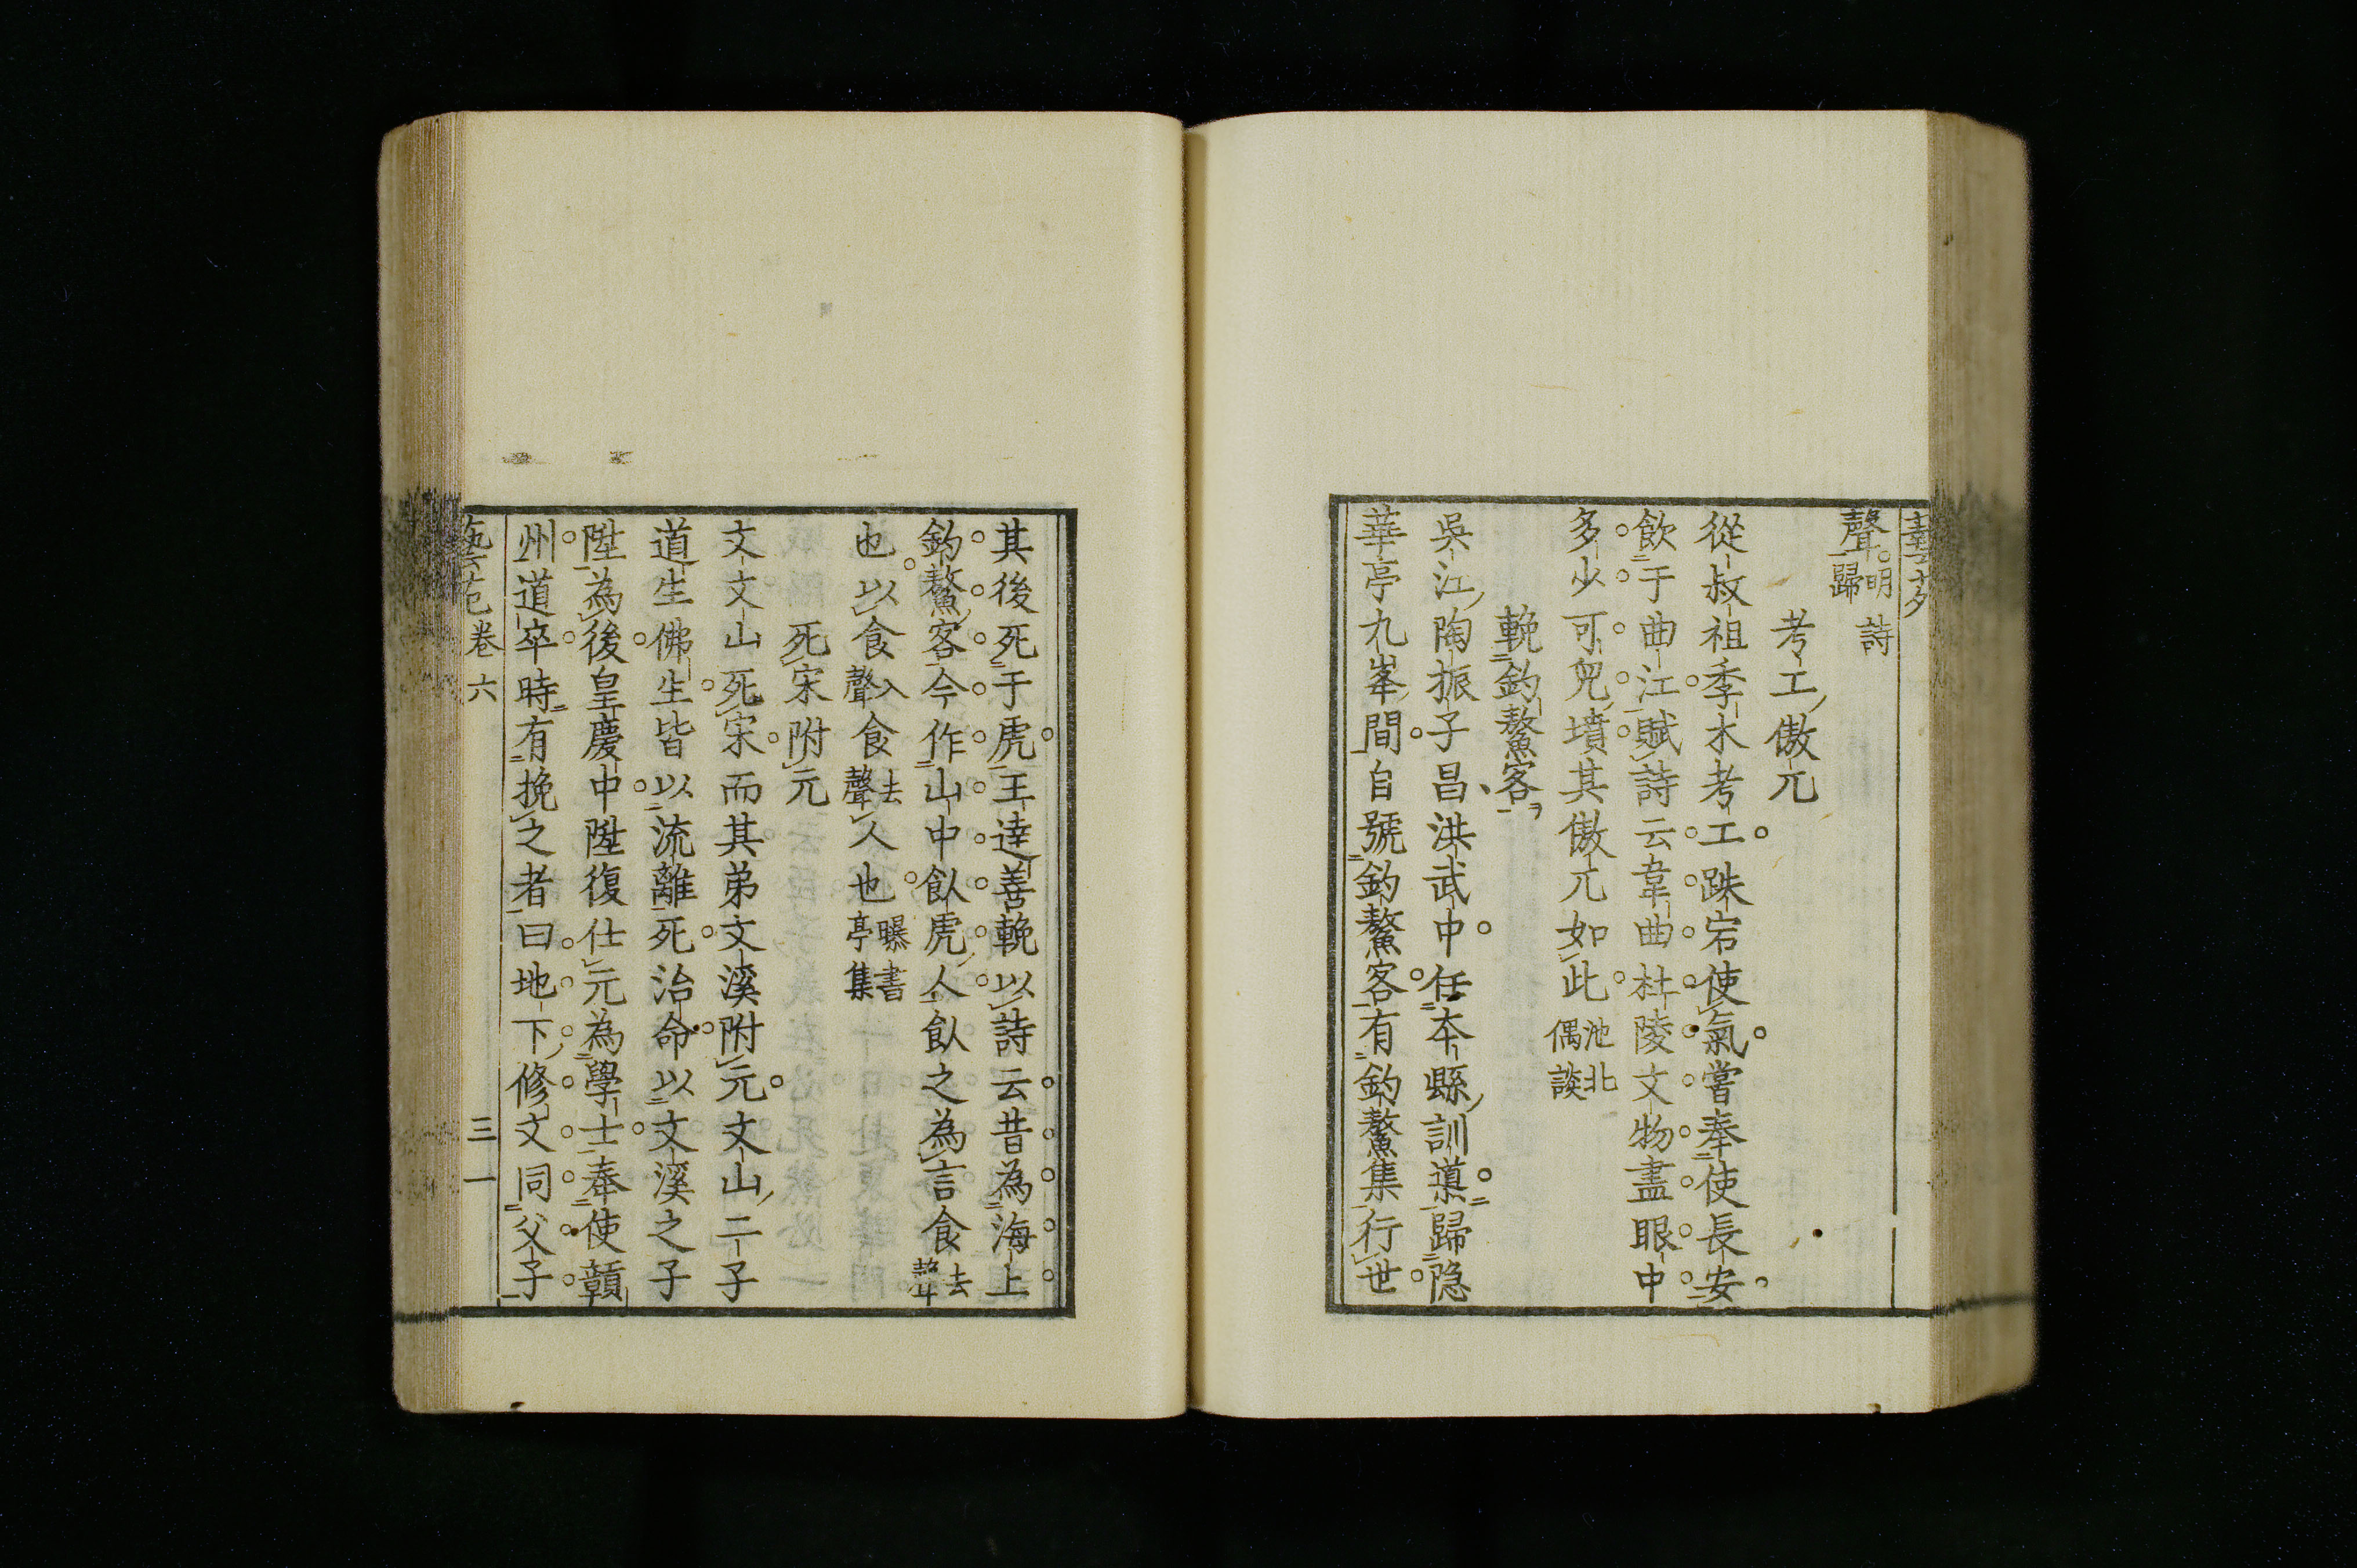 聲明詩
歸
考工傲兀
從叔祖季木考工跌宕使氣嘗奉使長安
飲于曲江賦詩云韋曲杜陵文物盡眼中
多少可兒墳其傲兀如此池北
偶談
輓釣鰲客
吳江陶振子昌洪武中任本縣訓導歸隐
華亭九峯間自號釣鰲客有釣鰲集行世
其後死于虎王達善輓以詩云昔為海上
釣鰲客今作山中飤虎人飤之為言食去
聲
也以食入
聲食去
聲人也曝書
亭集
死宋附元
文文山死宋而其弟文溪附元文山二子
道生佛生皆以流離死治命以文溪之子
陞為後皇慶中陞復仕元為學士奉使贛
州道卒時有挽之者曰地下修文同父子
藝苑 卷六 三一